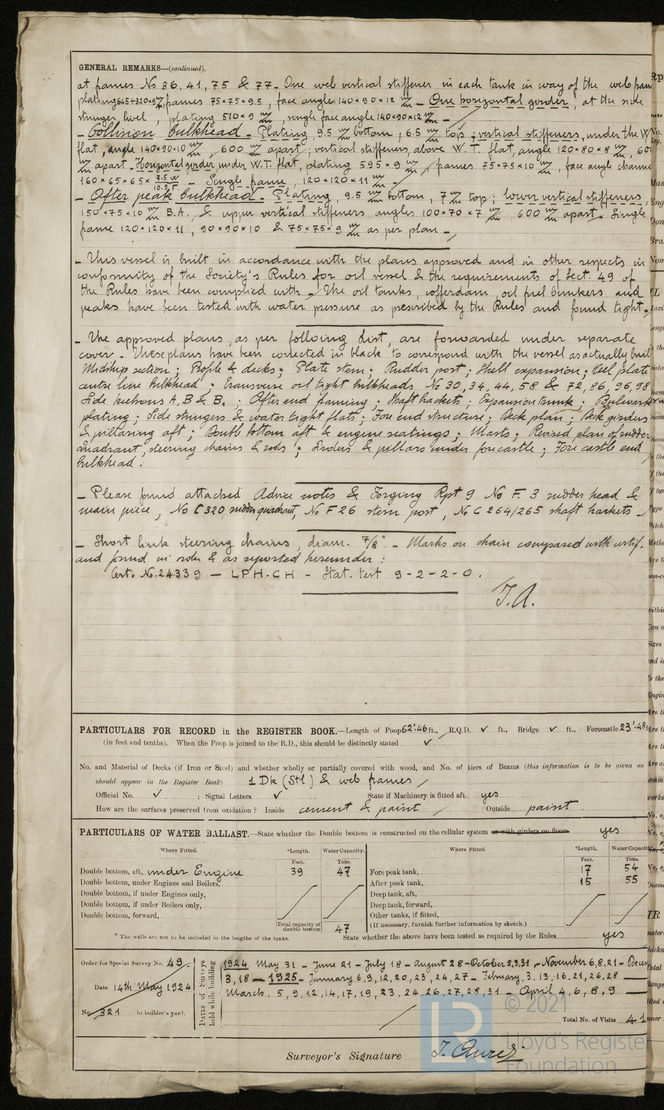 GENERAL REMARKS—(continued).
at frames No 36, 41, 75 & 77 - One web vertical stiffener in each tank in way of the web
plating frames 75×75×9.5, face angle 140×90×12 m/m - One horizontal girder, at the side
stringer level, plating 510×9 m/m, single face angle 140×90×12 m/m -
- Collision bulkhead - Plating, 9.5 m/m bottom, 6.5 m/m top; vertical stiffeners, under the W.T.
flat, angle 140×90×10 m/m, 600 m/m apart, vertical stiffeners above W.T. flat, angle 120×80×8 m/m, 60
m/m apart - Horizontal girder under W.T. flat, plating 595×9 m/m, frames 75×75×10 m/m, face angle channel
160×65×65× - Single frame, 120×120×11 m/m
- After peak bulkhead - Plating, 9.5 m/m bottom, 7 m/m top; lower vertical stiffeners,
150×75×10 m/m B.A. & upper vertical stiffeners angles 100×70×7 m/m 600 m/m apart - Single
frame 120×120×11, 90×90×10 & 75×75×9 m/m as per plan -
- This vessel is built in accordance with the plans approved and in other respects in
conformity of the Society's Rules for oil vessel & the requirements of Sect. 49 of
the Rules have been complied with - The oil tanks, cofferdam, oil fuel bunkers and
peaks have been tested with water pressure as prescribed by the Rules and found tight -
- The approved plans, as per following list, are forwarded under separate
cover - These plans have been corrected in black to correspond with the vessel as actually built
Midship section; Profile & decks; Plate stem; Rudder post; Shell expansion; keel plate
centre line bulkhead; transverse oil tight bulkheads No 30, 34, 44, 58 & 72, 86, 96, 98
Side A, B & B1; After end framing; Shaft brackets; Expansion trunk; Bulwark
plating; Side stringers & water tight flats; Fore end structure; Deck plan; Deck girders
& pillaring aft; Double bottom aft & engine seatings; Masts; Revised plan of rudder
quadrant, steering chains & rods; & pillars under forecastle; Fore castle end
bulkhead.
- Please find attached Advice notes & Forging Rpt 9 No F.3 rudder head &
main piece, No C320 rudder quadrant, No F26 stern post, No C264/265 shaft brackets -
- Short link steering chains, diam. 7/8" - Marks on chain compared with certif.
and found in order & as reported hereunder:
Cert. No. 24339 - LPH.CH - Stat. test 9-2-2-0.
T.A.
PARTICULARS FOR RECORD in the REGISTER BOOK.—Length of Poop 62'.46 ft., R.Q.D. ✓ ft., Bridge ✓ ft., Forecastle 23'.48
(in feet and tenths). When the Poop is joined to the B.D., this should be distinctly stated ✓
No. and Material of Decks (if Iron or Steel) and whether wholly or partially covered with wood, and No. of tiers of Beams (this information is to be given as
should appear in the Register Book) 1 Dk (Stl) & web frames
Official No. ✓ ; Signal Letters ✓ State if Machinery is fitted aft yes
How are the surfaces preserved from oxidation? Inside cement & paint Outside paint.
PARTICULARS OF WATER BALLAST.—State whether the Double bottom is constructed on the cellular system or with girders on floors yes
Where Fitted. *Length. Water Capacity. Where Fitted. *Length. Water Capacity
Feet. Tons. Feet. Tons.
Double bottom, aft, under Engine 39 47 Fore peak tank, 17 54
Double bottom, under Engines and Boilers, After peak tank, 15 55
Double bottom, if under Engines only, Deep tank, aft,
Double bottom, if under Boilers only, Deep tank, forward,
Double bottom, forward, Other tanks, if fitted,
Total capacity of double bottom 47 (If necessary, furnish further information by sketch.)
* The wells are not to be included in the lengths of the tanks. State whether the above have been tested as required by the Rules yes
Order for Special Survey No. 49
Date 14th May 1924
No. 321 in builder's yard.
Dates of Surveys held while building
1924 May 31 - June 21 - July 18 - August 28 - October 2,3,31 - November 6,8,21 - Decem
3,18 - 1925 - January 6,9,12,20,23,24,27 - February 3.13,16,21,26,28
March. 5,9,12,14,17,19,23,24,26,27,28,31 - April 4,6,8,9 -
Total No. of Visits 41
Surveyor's Signature
© 2021
Lloyd's Register
Foundation